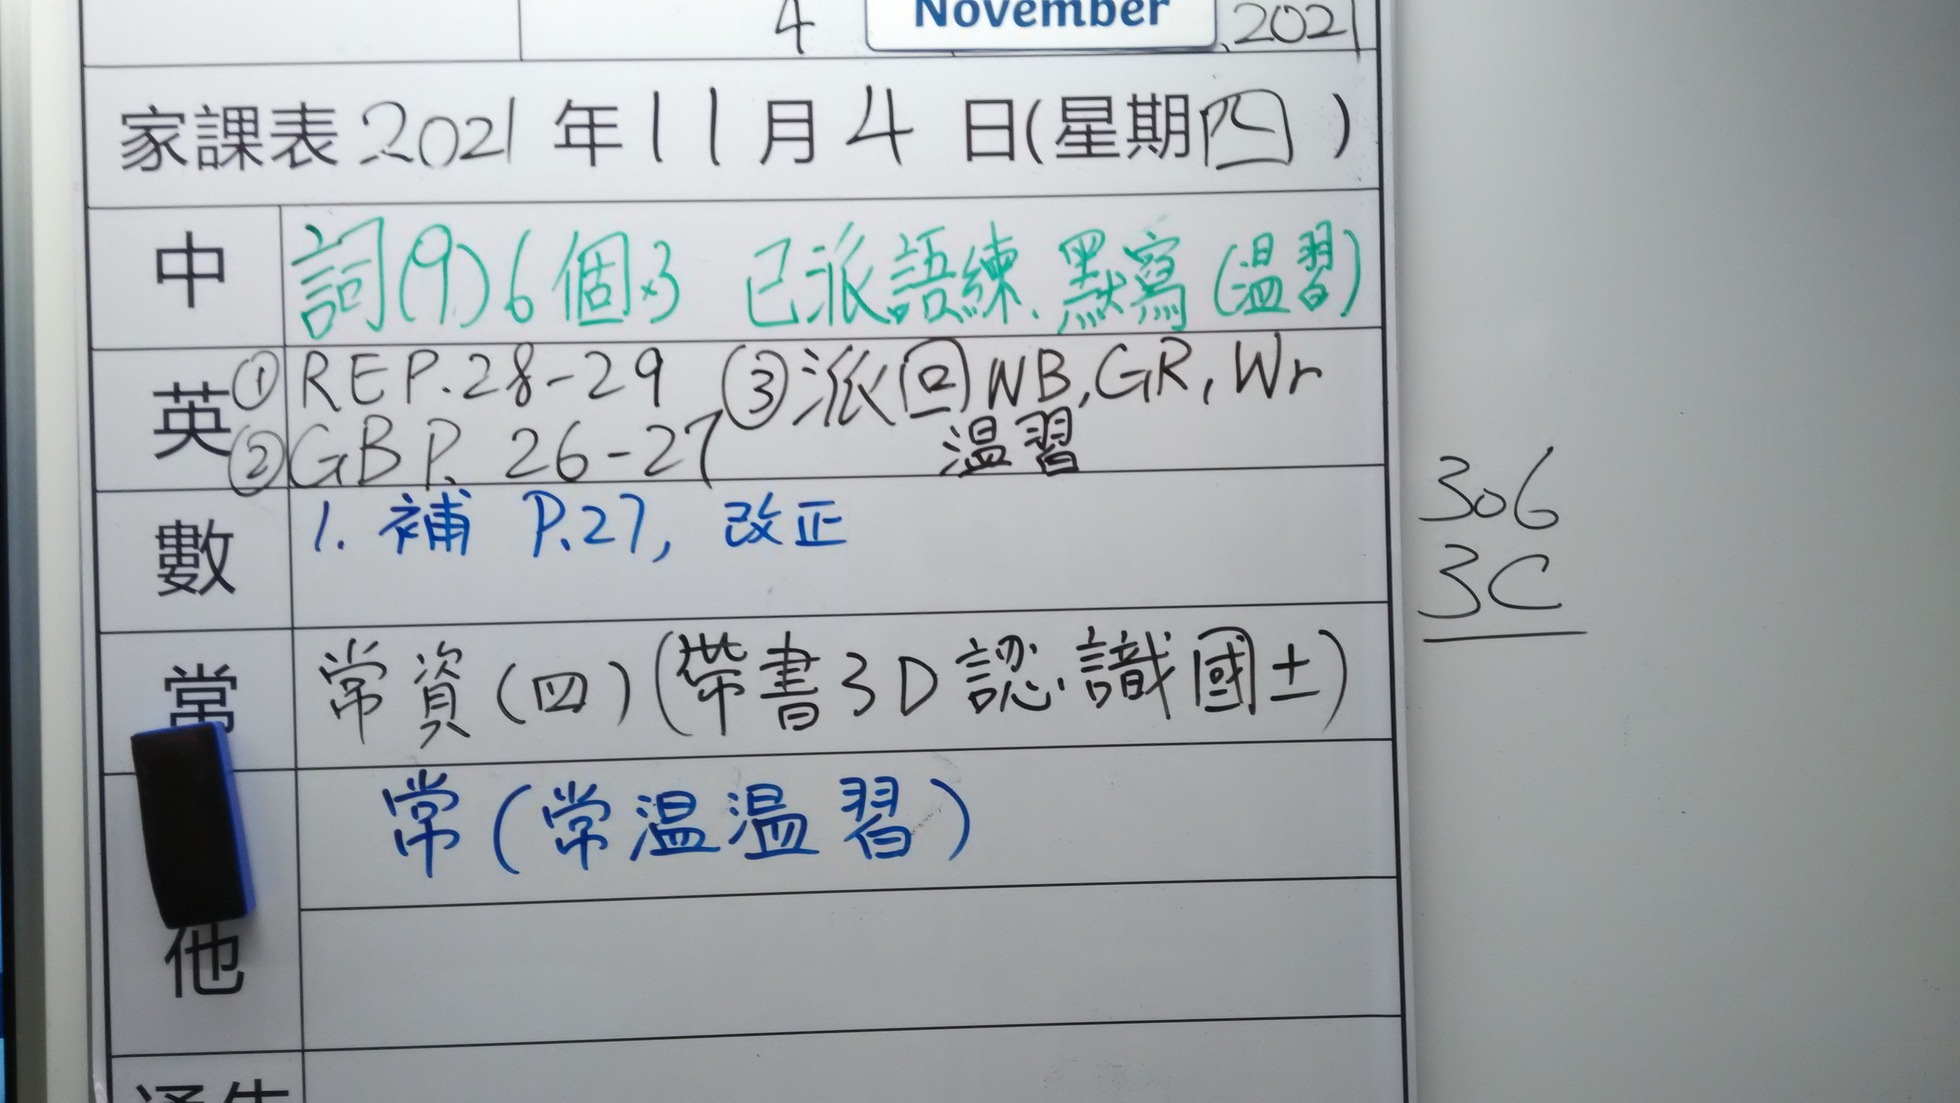 4 November ,2021
家課表 2021 年 11 月 4 日(星期四)
中 詞(9)6個×3 已派語練、默寫(溫習)
英 ① REP.28-29 ③派回NB,GR,Wr
② GBP. 26-27 溫習
數 1. 補 P.27, 改正
常 常資(四)(帶書3D認識國土)
常(常溫溫習)
他
通告
306
3C